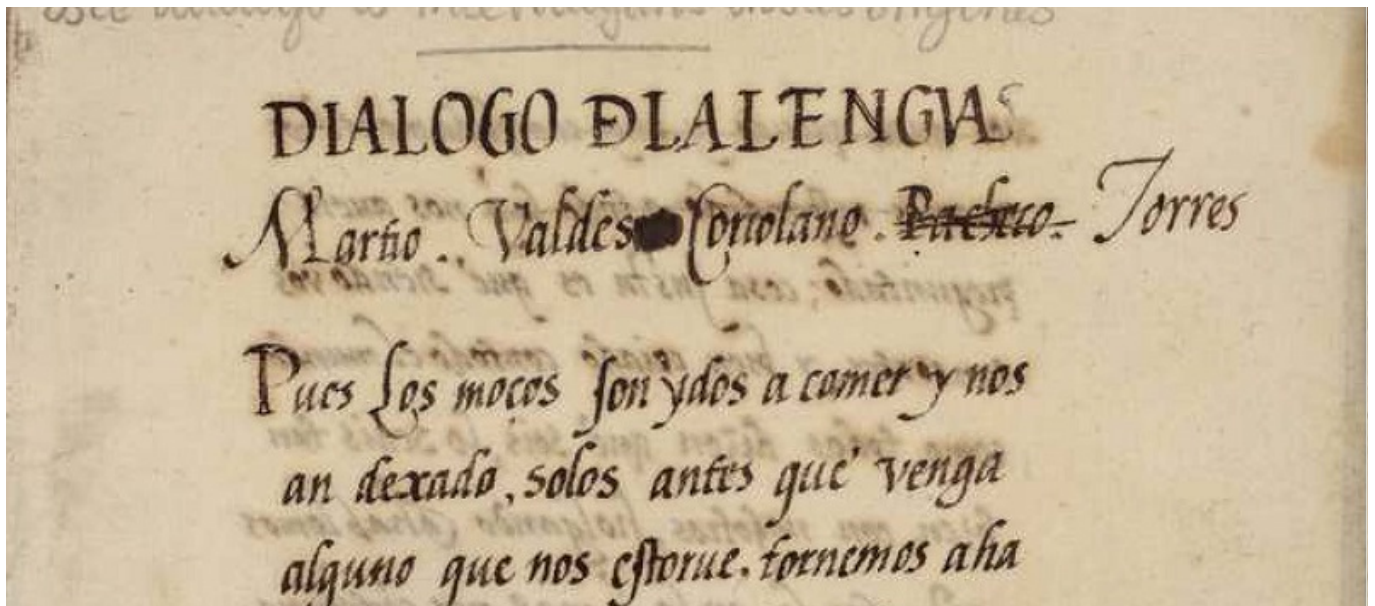 este dialogo es
DIALOGO DLALENGVAS
Martio.. Valdes Coriolano. Pacheco. Torres
Pues Los moços son ydos a comer y nos
an dexado, solos antes que venga
alguno que nos estorue. tornemos aha